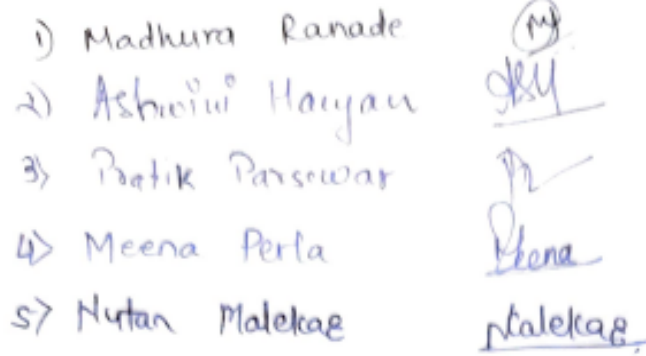 1) Madhura Ranade
2) Ashwini Haryan
3) Pratik Parsewar
4) Meena Perla Meena
5) Nutan Malekar Nalekar